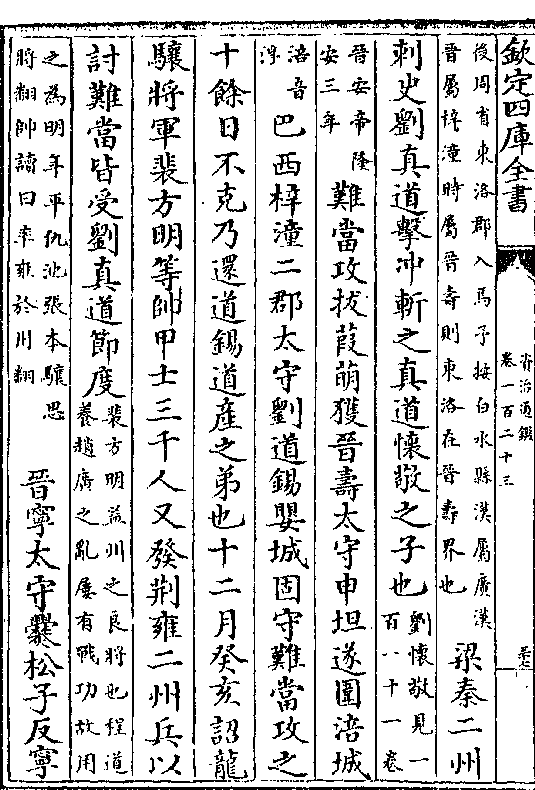 欽定四庫全書
資治通鑑
卷一百二十三
後周有東洛郡入馬子按白水縣漢屬廣漢
晉屬梓潼時屬晉壽則東洛在晉壽界也
梁秦二州
刺史劉真道擊冲斬之真道懷敬之子也
劉懷敬見一
百八十一卷
晉安帝隆
安三年
難當攻拔葭萌獲晉壽太守申坦遂圍涪城
涪音
浮
巴西梓潼二郡太守劉道錫嬰城固守難當攻之
十餘日不克乃還道錫道產之弟也十二月癸亥詔龍
驤將軍裴方明等帥甲士三千人又發荆雍二州兵以
討難當皆受劉真道節度
裴方明益州之良將也程道
養趙廣之亂屢有戰功故用
之為明年平仇池張本驤思
將翻帥讀曰率雍於川翻
晉寧太守爨松子反寧